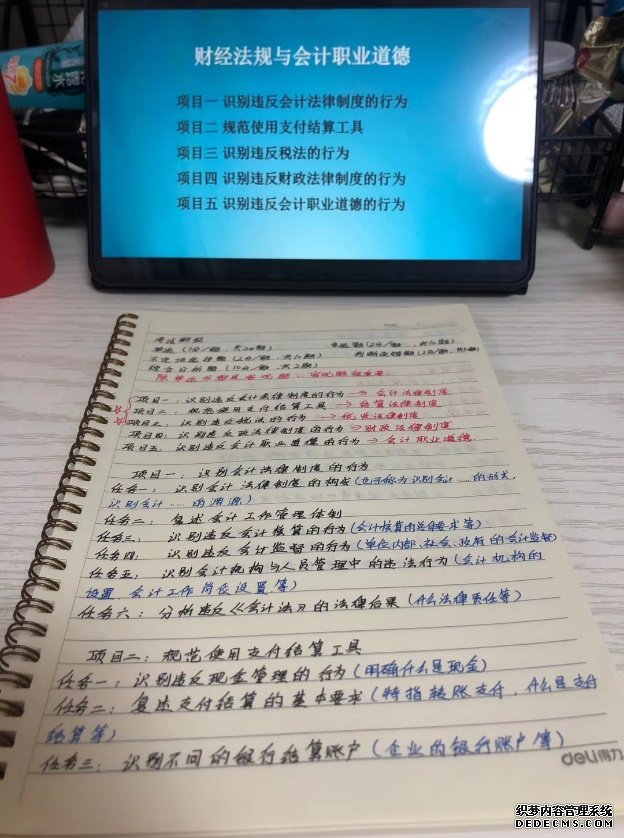 财经法规与会计职业道德
项目一 识别违反会计法律制度的行为
项目二 规范使用支付结算工具
项目三 识别违反税法的行为
项目四 识别违反财政法律制度的行为
项目五 识别违反会计职业道德的行为
考试题型
单选(1分/题,共20题) 多选题(2分/题,共10题)
不定项选择题(2分/题,共10题) 判断改错题(2分/题,共10题)
综合分析题(10分/题,共2题)
项目一:识别违反会计法律制度的行为→会计法律制度
项目二:规范使用支付结算工具→结算法律制度
项目三:识别违反税法的行为→税收法律制度
项目四:识别违反财政法律制度的行为→财政法律制度
项目五:识别违反会计职业道德的行为→会计职业道德.
项目一:识别会计法律制度的行为
任务一:识别会计法律制度的构成(也可称为识别会计……的形式,
识别会计……的渊源)
任务二:复述会计工作管理体制
任务三:识别违反会计核算的行为(会计核算的总体要求等)
任务四:识别违反会计监督的行为(单位内部、社会、政府的会计监督)
任务五:识别会计机构与人员管理中的违法行为(会计机构的
设置、会计工作岗位设置等)
任务六:分析违反《会计法》的法律后果(什么法律责任等)
项目二:规范使用支付结算工具
任务一:识别违反现金管理的行为(明确什么是现金)
任务二:复述支付结算的基本要求(特指转账支付,什么是支付
结算等)
任务三:识别不同的银行结算账户(企业的银行账户等)
deli得力
织梦内容管理系统
DEDECMS.COM